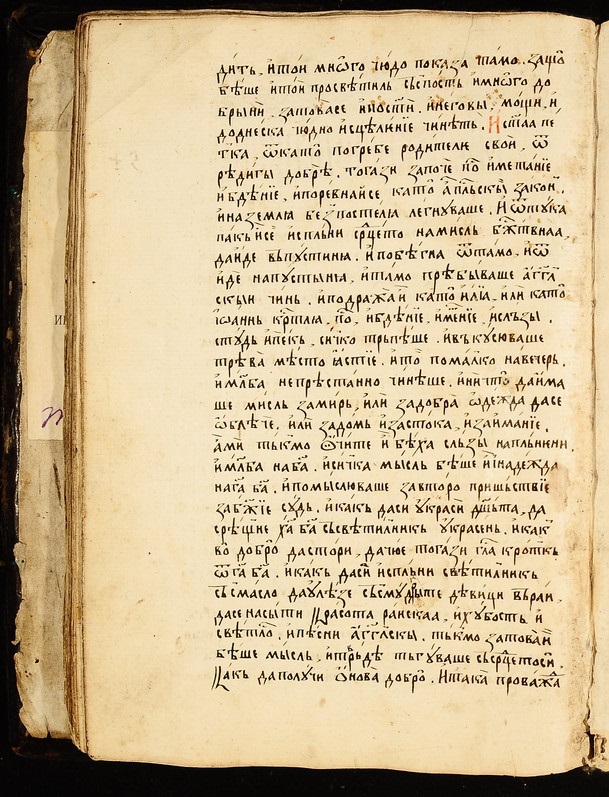 дитъ. итои мнѡго чюдо показа тамо. защо
бѣше итои просвѣтилъ съспость имнѡго до
брыни. затовасе ипости. инеговы мощи. и
до днеска чюдно исцѣленїе чинѣтъ. Истаа пе
тка, ѿкато погребе родителѥ свои, ѿ
рѣдиты добрѣ. тогази започе по иметанїе
ибдѣнїе, ипоревнайсе като апⷭлскы закон.
иназемлѧ безпостелѧ легнуваше. И ѿтука
пакъисе исплъни срⷣцето намисль бжⷭтвнаа,
да иде въпустинѧ. ипобѣгна ѿтамо. иѿ
иде напустынѧ, итамо прѣбываше агг҃л
скыи чинь. иподражаи като илїа, или като
іѡаннь крⷭтлѧ, по, ибдѣнїе, имнїе, ислъзы,
студь ипекъ, сичко тръпѣше. ивъкусюваше
трѣва мѣсто ꙗстїе. ито помалко навечерь.
имлба непрѣстанно чинѣше. иничто даима
ше мисль замирь, или задобра ѡдежда дасе
ѡблѣче, или задомъ изастока, изаиманїе,
ами тъкмо ѻчите и бѣха слъзы наплънени,
имлба наба. исичка мысль бѣше и надежда
нага ба. ипомислюваше завторо пришьствїе
забжїе судъ. икакъ даси украси дш҃ъта, да
срѣщне ха ба съсвѣтилникъ украсень. икак
во добро дастори, дачюе тогази гла кротъкъ
ѿга ба. икакъ даси исплъни свѣтилникъ
съсмасло даулѣзе съсмудрыте дѣвици въраи,
дасе насыти красота раискаа, ихубость и
свѣтло, ипѣсни агг҃лскы. тъкмо затоваи
бѣше мысль, итврьдѣ тъгуваше съсрⷣцетоси,
какъ даполучи ѻнова добро. Итака проважа